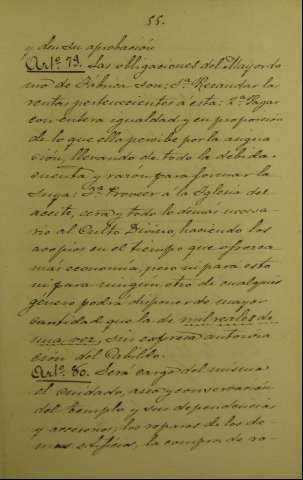 55.
y den su aprobación
Artº 79. Las obligaciones del Mayordo
mo de Fábrica son: 1ª Recaudar la
renta perteneciente a esta: 2ª Pagar
con entera igualdad y en proporción
de lo que ella percibe por la asigna
ción, llevando de todo la debida
cuenta y razon para formar la
suya: 3ª Proveer á la Iglesia del
aceite, cera y todo lo demas necesa
rio al Culto Divino, haciendo los
acopios en el tiempo que ofrezca
más economía, pero ni para esto
ni para ningun otro de cualquier
género podrá disponer de mayor
cantidad que la de mil reales de
una vez, sin espresa autoriza
ción del Cabildo.
Artº 80. Será cargo del mismo
el cuidado, aseo y conservación
del templo y sus dependencias
y accesorios, los reparos de los de
mas edificios, la compra de ro-